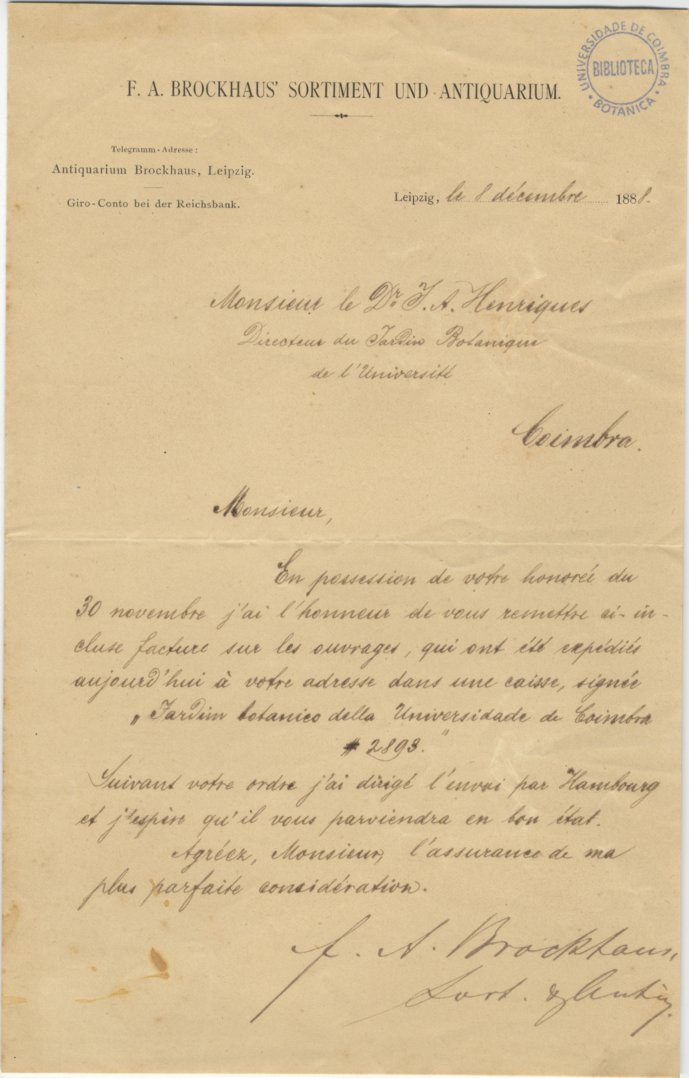 UNIVERSIDADE DE COIMBRA
BIBLIOTECA
BOTANICA
F. A. BROCKHAUS' SORTIMENT UND ANTIQUARIUM.
Telegramm-Adresse:
Antiquarium Brockhaus, Leipzig.
Giro-Conto bei der Reichsbank.
Leipzig, le 8 décembre 1888.
Monsieur le Dr. J. A. Henriques
Directeur du Jardin Botanique
de l'Université
Coimbra.
Monsieur,
En possession de votre honorée du
30 novembre j'ai l'honneur de vous remettre ci-in-
cluse facture sur les ouvrages, qui ont été expédiés
aujourd'hui à votre adresse dans une caisse, signée
„Jardim botanico della Universidade de Coimbra
# 2893."
Suivant votre ordre j'ai dirigé l'envoi par Hambourg
et j'espère qu'il vous parviendra en bon état.
Agréez, Monsieur, l'assurance de ma
plus parfaite considération.
F. A. Brockhaus
Sort. & Antiq.